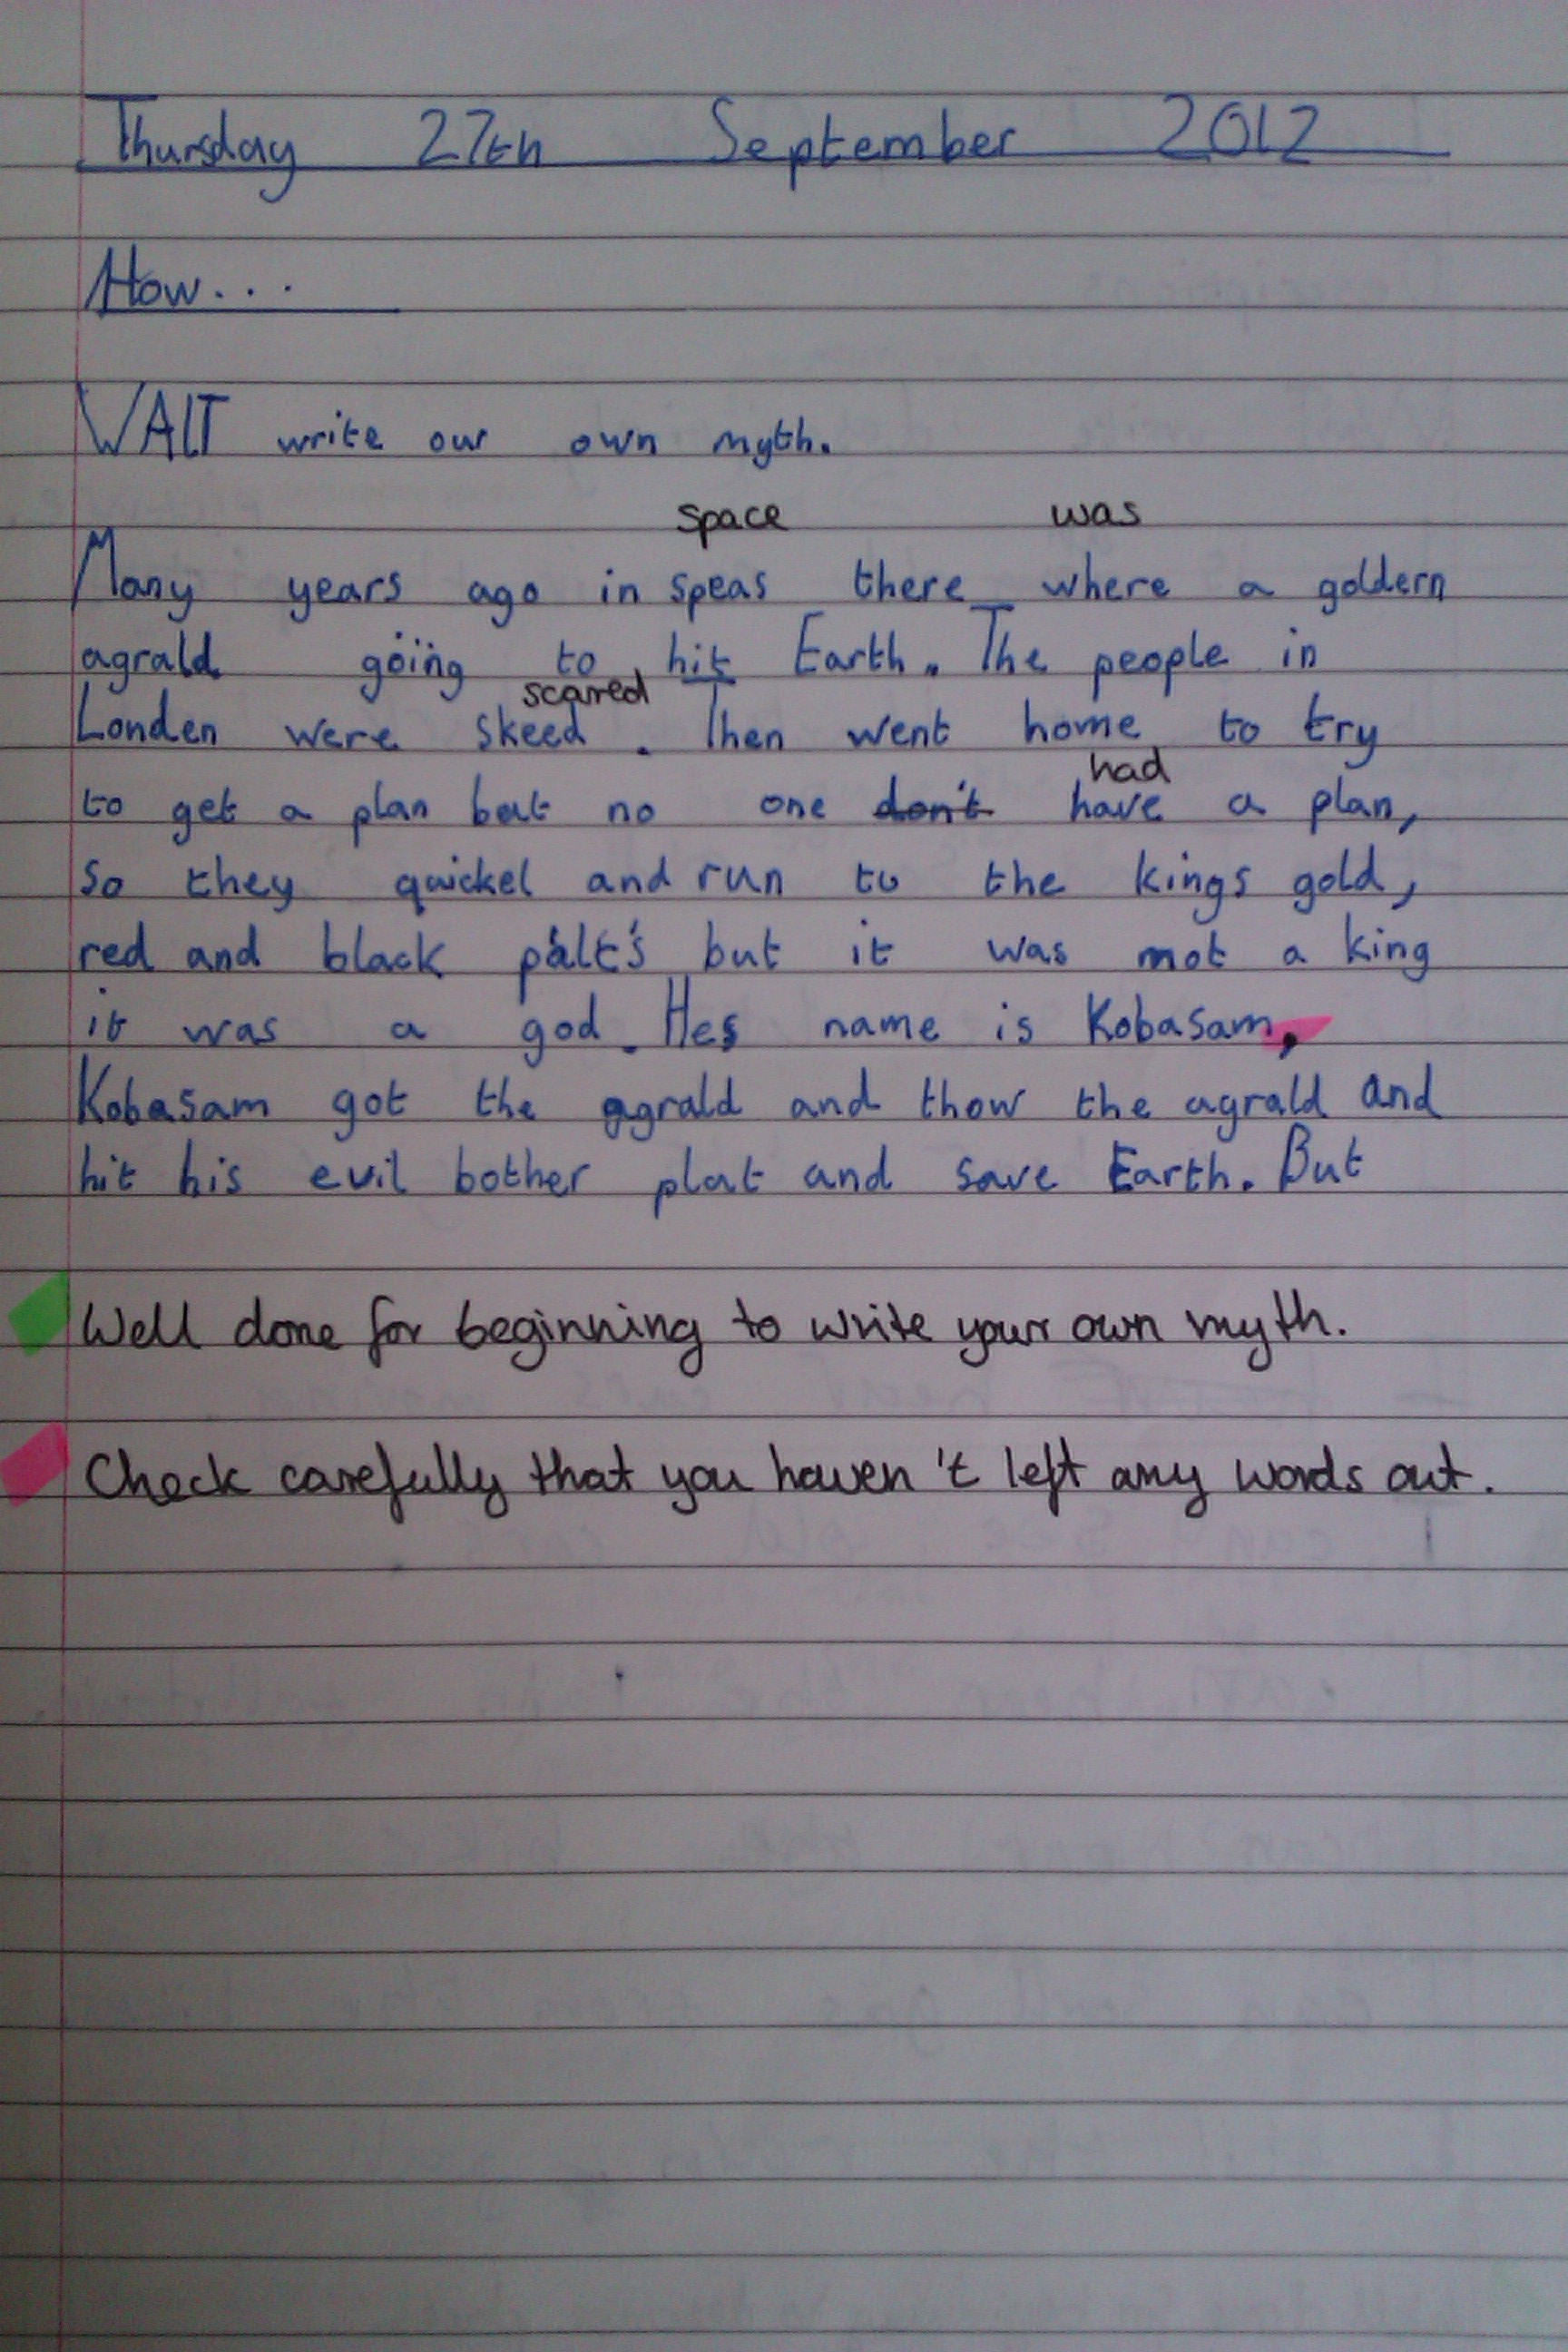 Thursday 27th September 2012
How...
WALT write our own myth.
space was
Many years ago in speas there where a goldern
agrald going to hit Earth. The people in
scared
Londen were skeed. Then went home to try
had
to get a plan but no one don't have a plan,
so they quickel and run to the kings gold,
red and black palt's but it was not a king
it was a god. Hes name is Kobasam.
Kobasam got the agrald and thow the agrald and
hit his evil bother plat and save Earth. But
Well done for beginning to write your own myth.
Check carefully that you haven't left any words out.